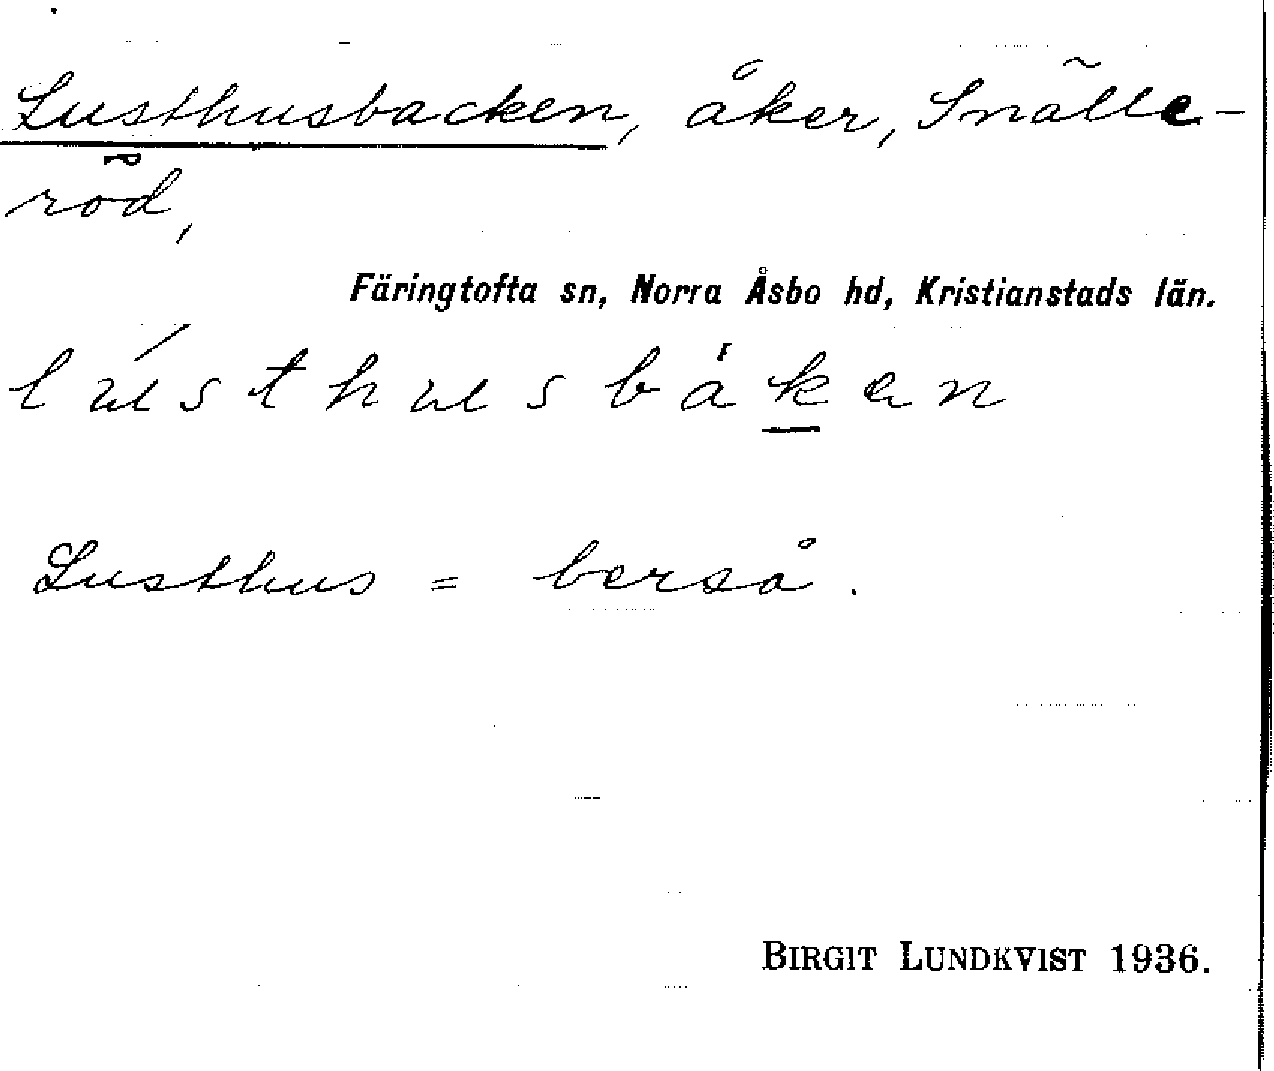 Lusthusbacken, åker, Snälle-
röd,
Färingtofta sn, Norra Åsbo hd, Kristianstads län.
lústhusbáken
Lusthus = berså.
BIRGIT LUNDKVIST 1936.